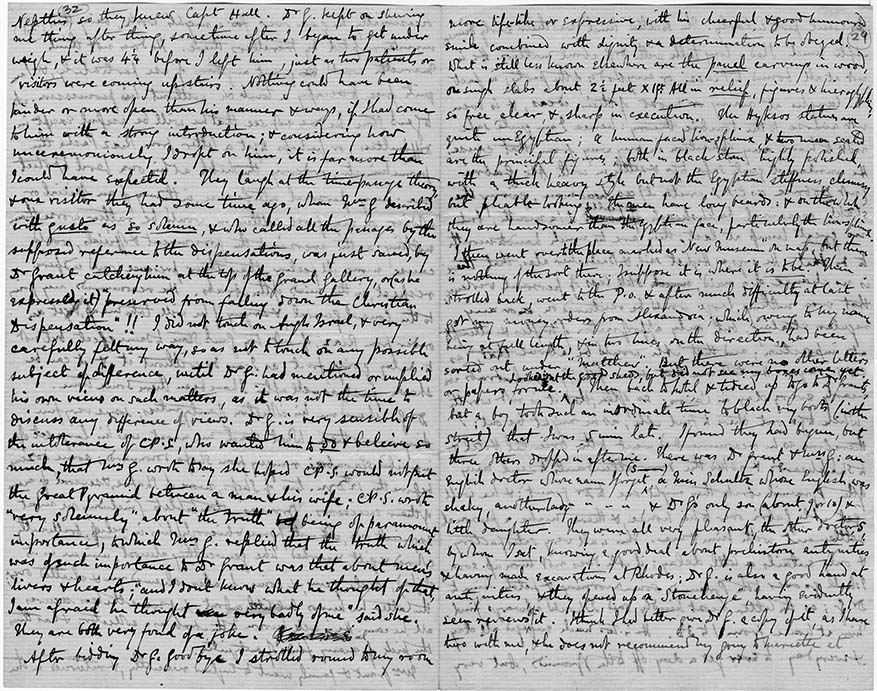 32
Nephthis, so they knew Capt Hall. Dr G. kept on shewing
me thing after thing, sometime after I began to get under
weigh, & it was 4¼ before I left him, just as two patients or
visitors were coming upstairs. Nothing could have been
kinder or more open than his manner & ways, if I had come
to him with a strong introduction; & considering how
unceremoniously I dropt on him, it is far more than
I could have expected. They laugh at the time-passage theory
& one visitor they had some time ago, whom Mrs G described
with gusto as so solemn, & who called all the passages by the
supposed reference to the dispensations, was just saved by
Dr Grant catching him at the top of the Grand Gallery, or (as he
expressed it) "preserved from falling down the Christian
Dispensation"!! I did not touch on Anglo Israel, & very
carefully felt my way, so as not to touch on any possible
subject of difference, until Dr G. had mentioned or implied
his own views on such matters, as it was not the time to
discuss any difference of views. Dr G. is very sensible of
the intolerance of C.P.S, who wanted him to do & believe so
much, that Mrs G. wrote to say she hoped C.P.S. would not put
the Great Pyramid between a man & his wife; C.P.S. wrote
"very solemnly" about "the truth" being of paramount
importance, to which Mrs G. replied that the truth which
was of such importance to Dr Grant was that about men's
livers & hearts; "and I don't know what he thought of that
I am afraid he thought very badly of me" said she.
They are both very fond of a joke.
After bidding Dr G. goodbye I strolled round to my room
29
more life-like or expressive, with his cheerful & good humoured
smile combined with dignity & a determination to be obeyed.
What is still less known elsewhere are the panel carvings in wood,
on single slabs about 2½ feet x 1ft. All in relief, figures & hieroglyphs
so free clear & sharp in execution. The Hyksos statues are
quite un Egyptian; a human faced lion-sphinx & two men seated
are the principal figures, both in black stone highly polished
with a thick heavy style but not the Egyptian stiffness, clumsy
but pliable looking. The men have long beards; & on the whole
they are handsomer than the Egyptian face, particularly the lion sphinx.
I then went over to the place marked as "New Museum" on map, but there
is nothing of the sort there; I suppose it is where it is to be. Then
strolled back, went to the P.O. & after much difficulty at last
got my money orders from Alexandria which, owing to my name
being at full length, & in two lines, on the direction, had been
sorted out under "Matthew". But there were no other letters
or papers for me. Looked at the good sheds, but did not see my boxes come yet.
Then back to hotel & tidied up to go to Dr Grant's,
but a boy took such an inordinate time to black my boots (in the
street) that I was 5 min late. I found they had begun, but
three others dropped in after me. There was Dr Grant & Mrs G; an
English doctor whose name I forget, a Miss Schultz whose English was
shaky, another lady " " " & Dr G's only son (about 9 or 10) &
little daughter. They were all very pleasant, the other doctor
by whom I sat, knowing a good deal about prehistoric antiquities
& having made excavations at Rhodes; Dr G. is also a good hand at
antiquities & they opened up on "Stonehenge" having evidently
seen reviews of it. I think I had better give Dr G. a copy of it, as I have
two with me, & he does not recommend my going to Mariette at